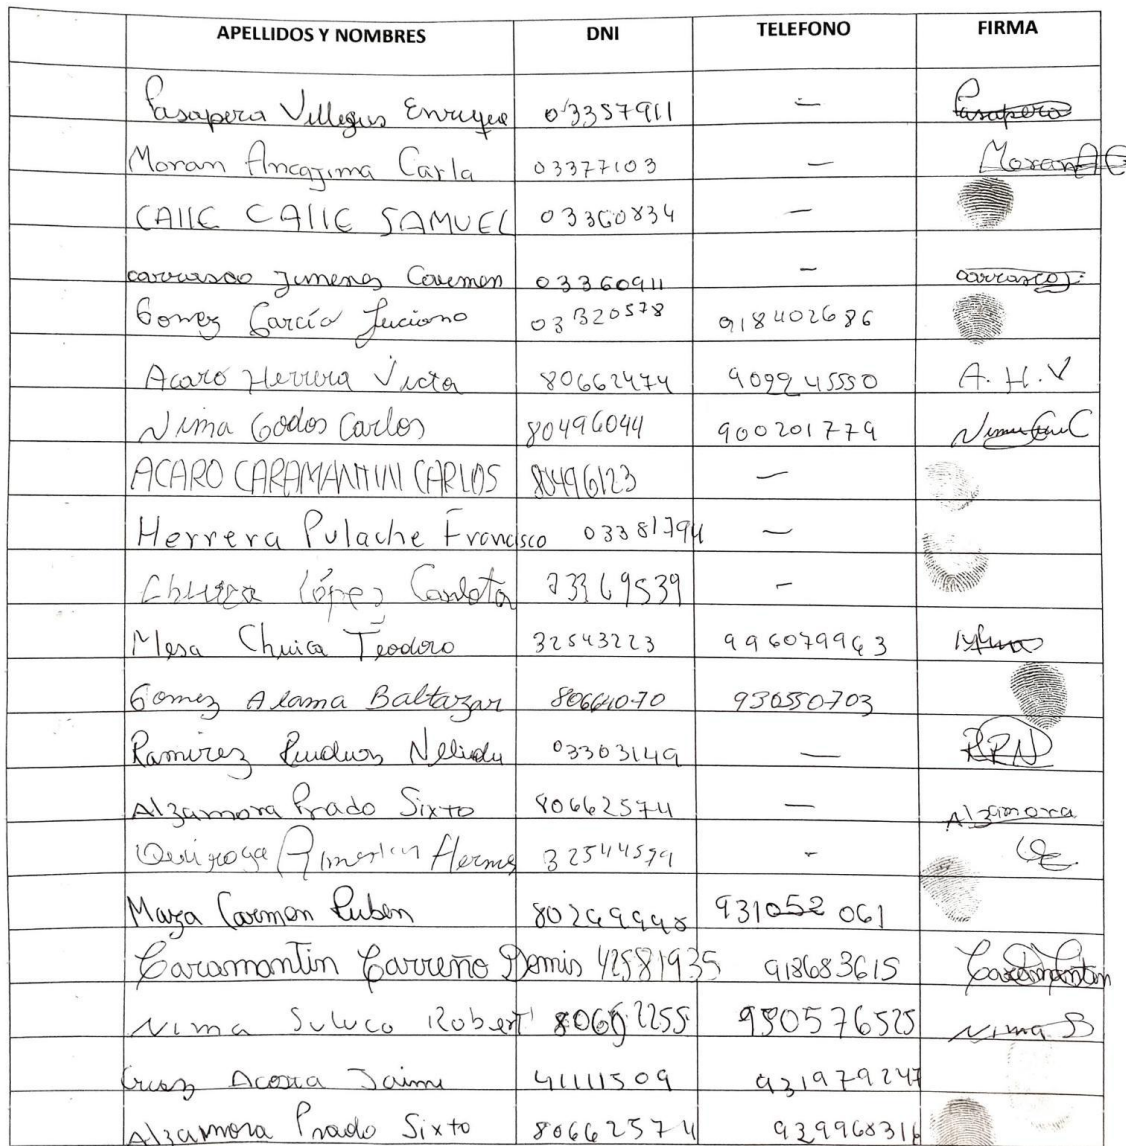 APELLIDOS Y NOMBRES DNI TELEFONO FIRMA
Pasapera Villegas Enrique 03357911 - Pasapera
Moran Ancajima Carla 03377103 - Moran A C
CAllE CAllE SAMUEL 03360834 -
carrasco Jimenes Carmen 03360911 - carrasco J.
Gomez García Luciano 03320578 918402686
Acaro Herrera Victor 80662474 909245550 A. H. V
Nima Godos Carlos 80496044 900201779
ACARO CARAMANTINI CARLOS 80496123 -
Herrera Pulache Francisco 03381794 -
López Carlota 03369539 -
Mesa Chuica Teodoro 32543223 996079963
Gomez Alama Baltazar 80664070 930550703
Ramirez Nelida 03303149 - RRN
Alzamora Prado Sixto 80662574 - Alzamora
Quiroga 32544579 -
Maza Carmen Ruben 80249998 931052 061
Caramantin Carreño Demis 42581935 918683615 Caramantin
Nima Suluco Robert 80662255 980576525 Nima S
Cruz Acosta Jaime 41111509 931979247
Alzamora Prado Sixto 80662574 929968316